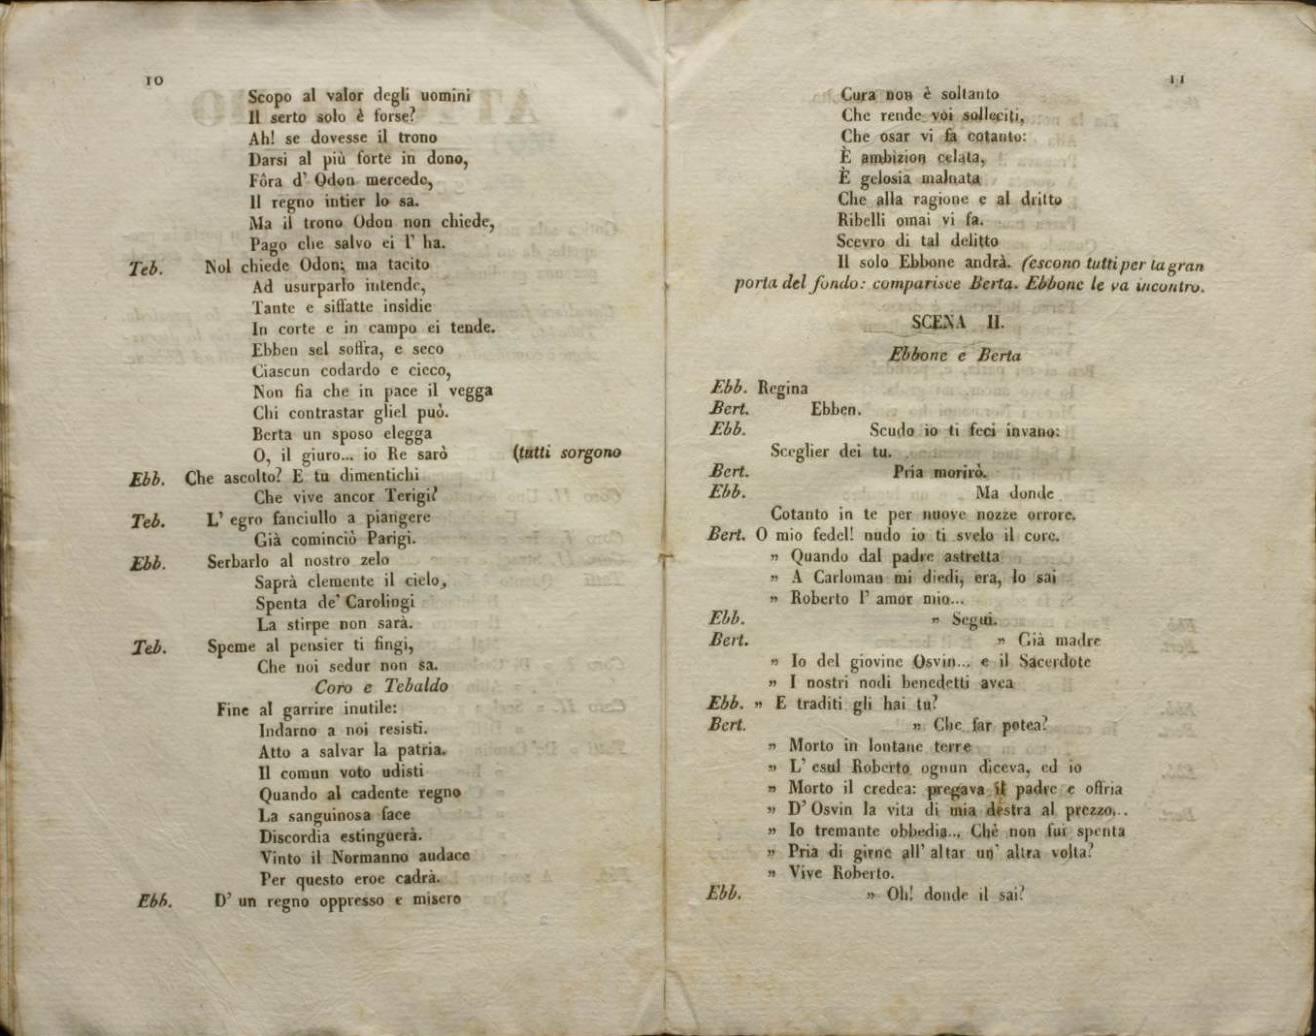 10
Scopo al valor degli uomini
Il serto solo è forse?
Ah! se dovesse il trono
Darsi al più forte in dono,
Fôra d' Odon mercede,
Il regno intier lo sa.
Ma il trono Odon non chiede,
Pago che salvo ei l' ha.
Teb. Nol chiede Odon; ma tacito
Ad usurparlo intende,
Tante e siffatte insidie
In corte e in campo ei tende.
Ebben sel soffra, e seco
Ciascun codardo e cieco,
Non fia che in pace il vegga
Chi contrastar gliel può.
Berta un sposo elegga
O, il giuro... io Re sarò (tutti sorgono
Ebb. Che ascolto? E tu dimentichi
Che vive ancor Terigi?
Teb. L' egro fanciullo a piangere
Già cominciò Parigi.
Ebb. Serbarlo al nostro zelo
Saprà clemente il cielo,
Spenta de' Carolingi
La stirpe non sarà.
Teb. Speme al pensier ti fingi,
Che noi sedur non sa.
Coro e Tebaldo
Fine al garrire inutile:
Indarno a noi resisti.
Atto a salvar la patria.
Il comun voto udisti
Quando al cadente regno
La sanguinosa face
Discordia estinguerà.
Vinto il Normanno audace
Per questo eroe cadrà.
Ebb. D' un regno oppresso e misero
11
Cura non è soltanto
Che rende voi solleciti,
Che osar vi fa cotanto:
È ambizion celata,
È gelosia malnata
Che alla ragione e al dritto
Ribelli omai vi fa.
Scevro di tal delitto
Il solo Ebbone andrà. (escono tutti per la gran
porta del fondo: comparisce Berta. Ebbone le va incontro.
SCENA II.
Ebbone e Berta
Ebb. Regina
Bert. Ebben.
Ebb. Scudo io ti feci invano:
Sceglier dei tu.
Bert. Pria morirò.
Ebb. Ma donde
Cotanto in te per nuove nozze orrore.
Bert. O mio fedel! nudo io ti svelo il core.
" Quando dal padre astretta
" A Carloman mi diedi, era, lo sai
" Roberto l' amor mio...
Ebb. " Segui.
Bert. " Già madre
" Io del giovine Osvin... e il Sacerdote
" I nostri nodi benedetti avea
Ebb. " E traditi gli hai tu?
Bert. " Che far potea?
" Morto in lontane terre
" L' esul Roberto ognun diceva, ed io
" Morto il credea: pregava il padre e offria
" D' Osvin la vita di mia destra al prezzo...
" Io tremante obbedia... Chè non fui spenta
" Pria di girne all' altar un' altra volta?
" Vive Roberto.
Ebb. " Oh! donde il sai?